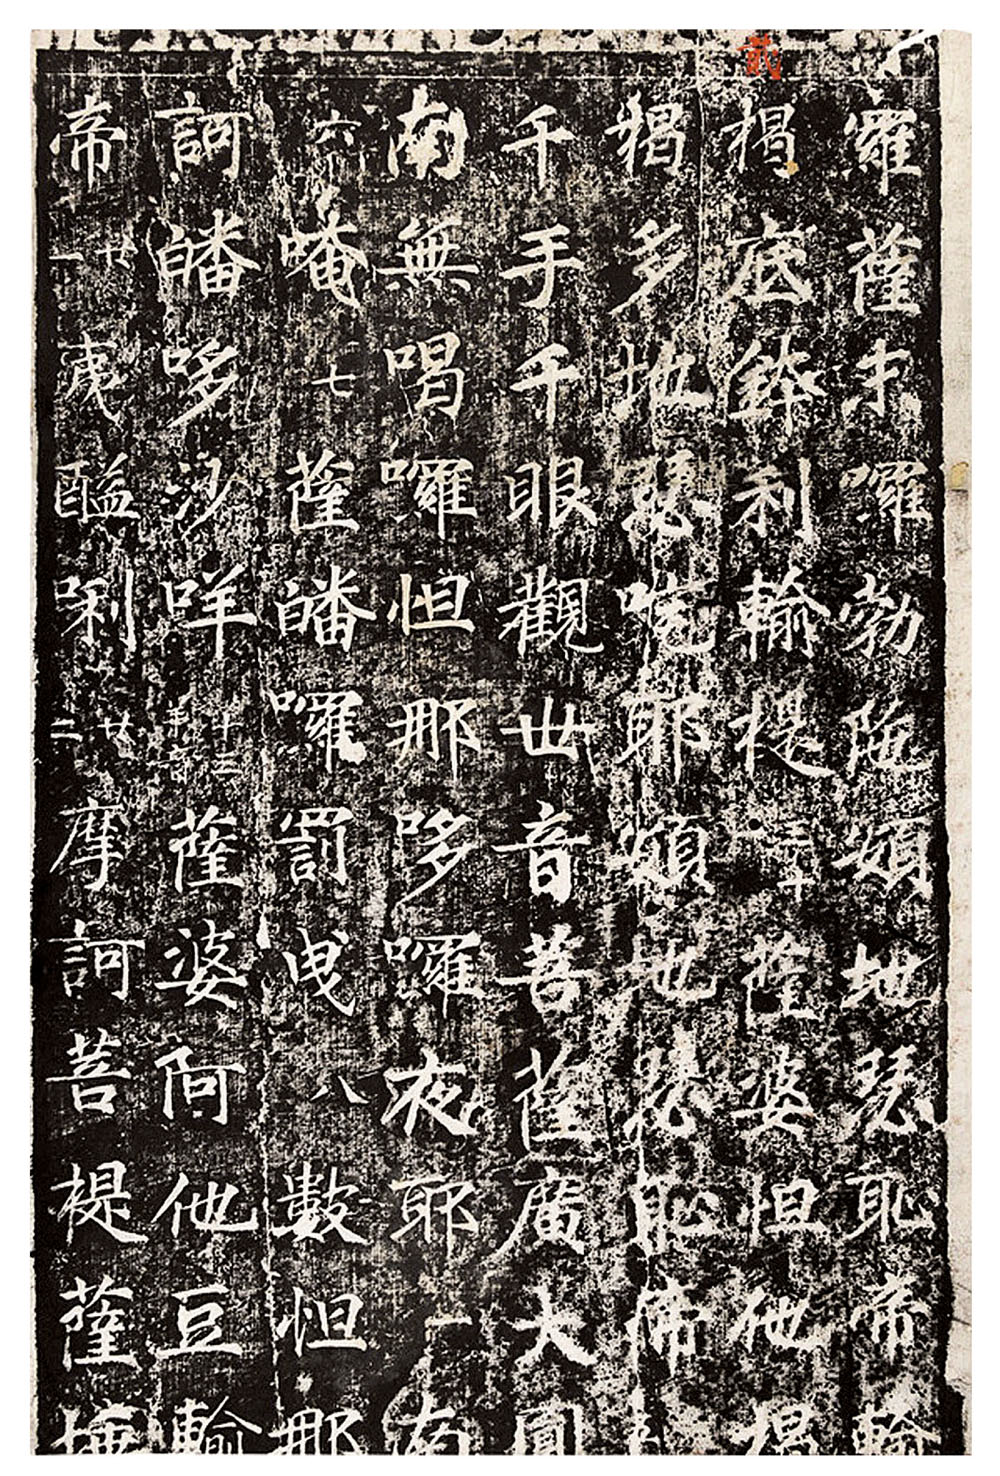 貳
羅薩末囉勃陁頞地瑟恥帝輸
揭底鉢利輸提三十薩婆怛他揭
揭多地瑟咤耶頞地瑟恥
千手千眼觀世音菩薩廣大圓
南無喝囉怛那哆囉夜耶一南
六唵七薩皤囉罰曳八數怛那
訶皤哆沙咩十三羊音薩婆阿他豆輸
帝廿一夷醯唎廿二摩訶菩提薩埵